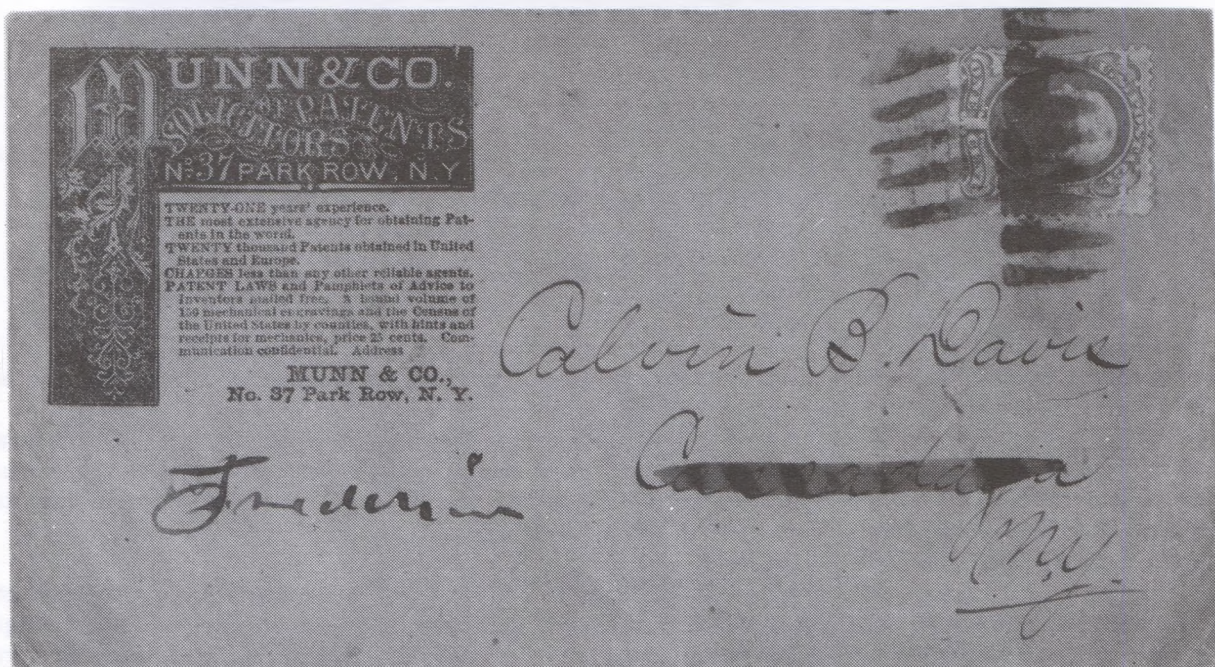 MUNN & CO.
SOLICITORS OF PATENTS
No. 37 PARK ROW, N.Y.
TWENTY-ONE years' experience.
THE most extensive agency for obtaining Pat-
ents in the world.
TWENTY thousand Patents obtained in United
States and Europe.
CHARGES less than any other reliable agents.
PATENT LAWS and Pamphlets of Advice to
Inventors mailed free. A bound volume of
150 mechanical engravings and the Census of
the United States by counties, with hints and
receipts for mechanics, price 25 cents. Com-
munication confidential. Address
MUNN & CO.,
No. 37 Park Row, N. Y.
Calvin B. Davis
N.Y.